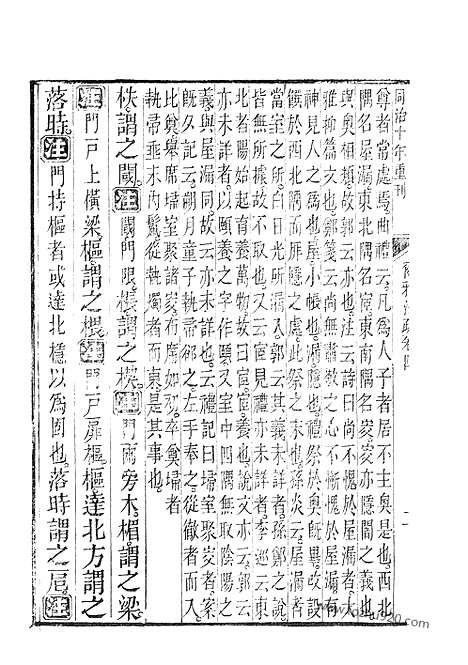 同治十年重刊
爾雅注疏卷四
尊者常處焉曲禮云凡爲人子者居不主奧是也西北
隅名屋漏東北隅名宧東南隅名窔窔亦隱闇之義也
與奧相類故郭云亦也注云詩曰尚不愧於屋漏者大
雅抑篇文也鄭箋云尚無肅敬之心不慚愧於屋漏有
神見人之爲也屋小帳也漏隱也禮祭於奧旣畢改設
饌於西北隅而厞隱之處此祭之末也孫炎云屋漏者
當室之白日光所漏入云其義未詳者以孫鄭之說
皆無所據故不取也云宧見禮亦未詳者李巡云東
北者陽始起育養萬物故曰宧宧養也說文亦云
亦未詳者以頤養之字作頤又室中四隅無取陰陽之
義與屋漏同故云亦未詳也云禮記曰埽室聚窔者案
旣夕記云朔月童子執帚郤之左手奉之從徹者而入
比奠舉席埽室聚諸窔布席如初卒奠埽者
執帚垂末內鬣從執燭者而東是其事也
柣謂之閾注閾門限棖謂之楔注門兩旁木楣謂之梁
注門戶上橫梁樞謂之椳注門戶扉樞樞達北方謂之
落時注門持樞者或達北檼以爲固也落時謂之戹注
www.1920.com